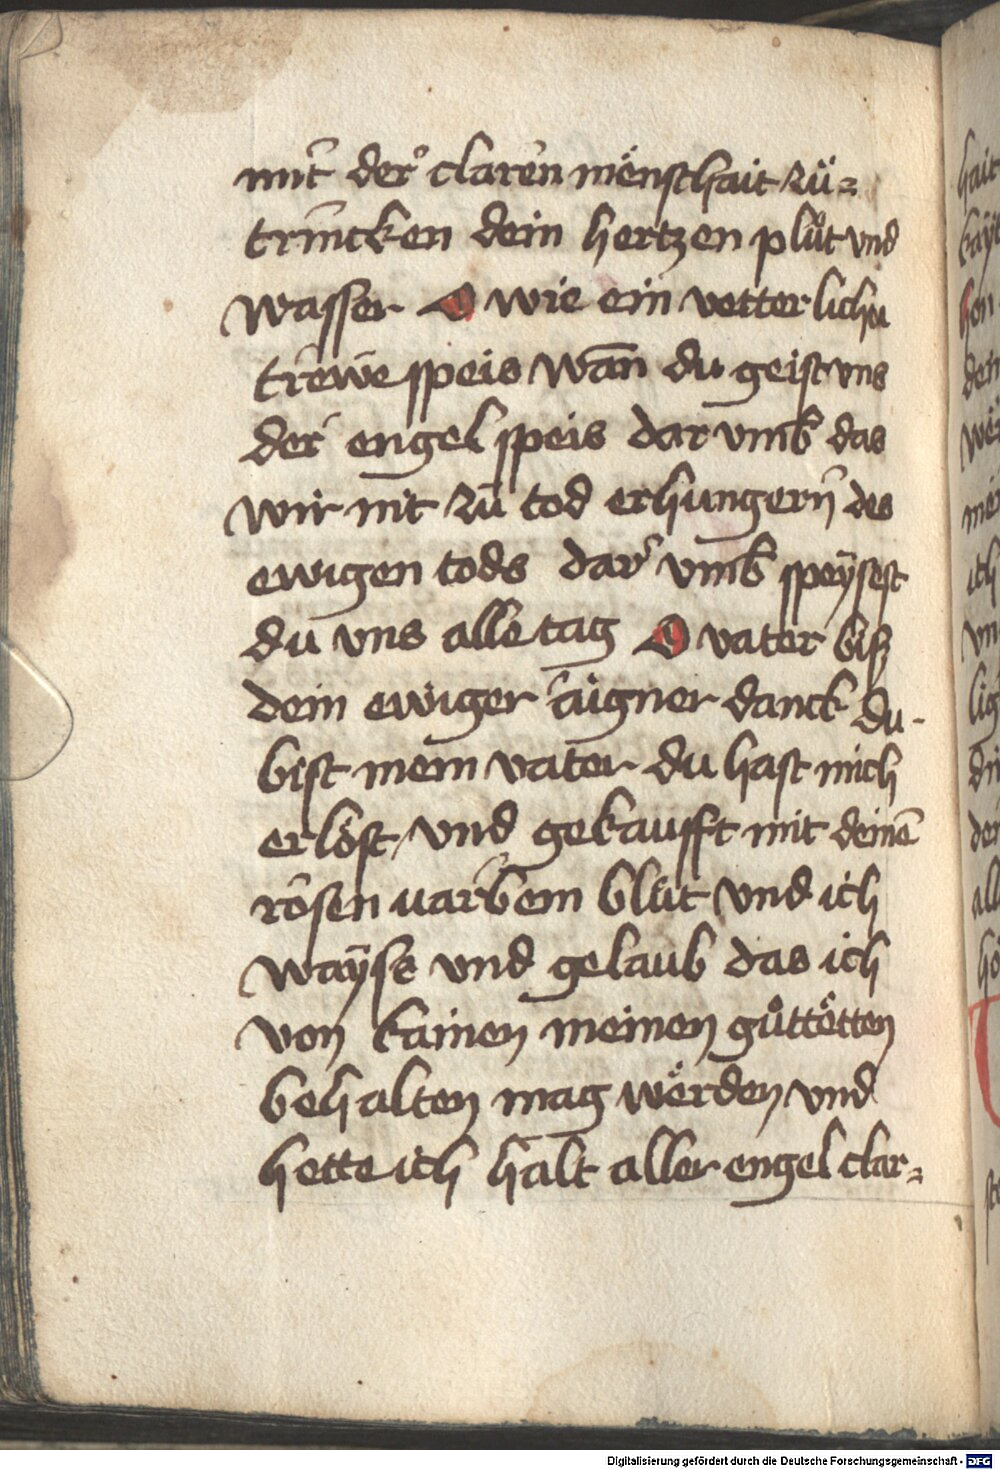 mit der claren mënschait zü⸗
trincken dein hertzen plůt vnd
wasser O wie ein vetterliche
trewe speis wan̄ du geist vns
der engel speis dar vmb das
wir nit zu tod erhungern des
ewigen tods dar vmb speÿsest
du vns alle tag O vater biß
dein ewiger aigner danck du
bist mein vater du hast mich
erlöst vnd gekaufft mit deinē
rosen varbem blüt vnd ich
waÿss vnd gelaub das ich
von kainen meinen gůttëtten
behalten mag wërden vnd
hette ich halt aller engel clar⸗
Digitalisierung gefördert durch die Deutsche Forschungsgemeinschaft - DFG